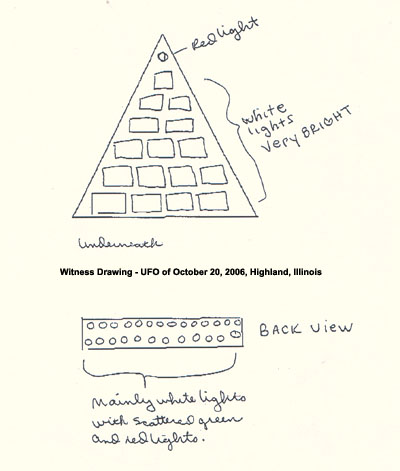 Red light
White
lights
VERY BRIGHT
Underneath
Witness Drawing - UFO of October 20, 2006, Highland, Illinois
BACK VIEW
Mainly white lights
with scattered green
and red lights.